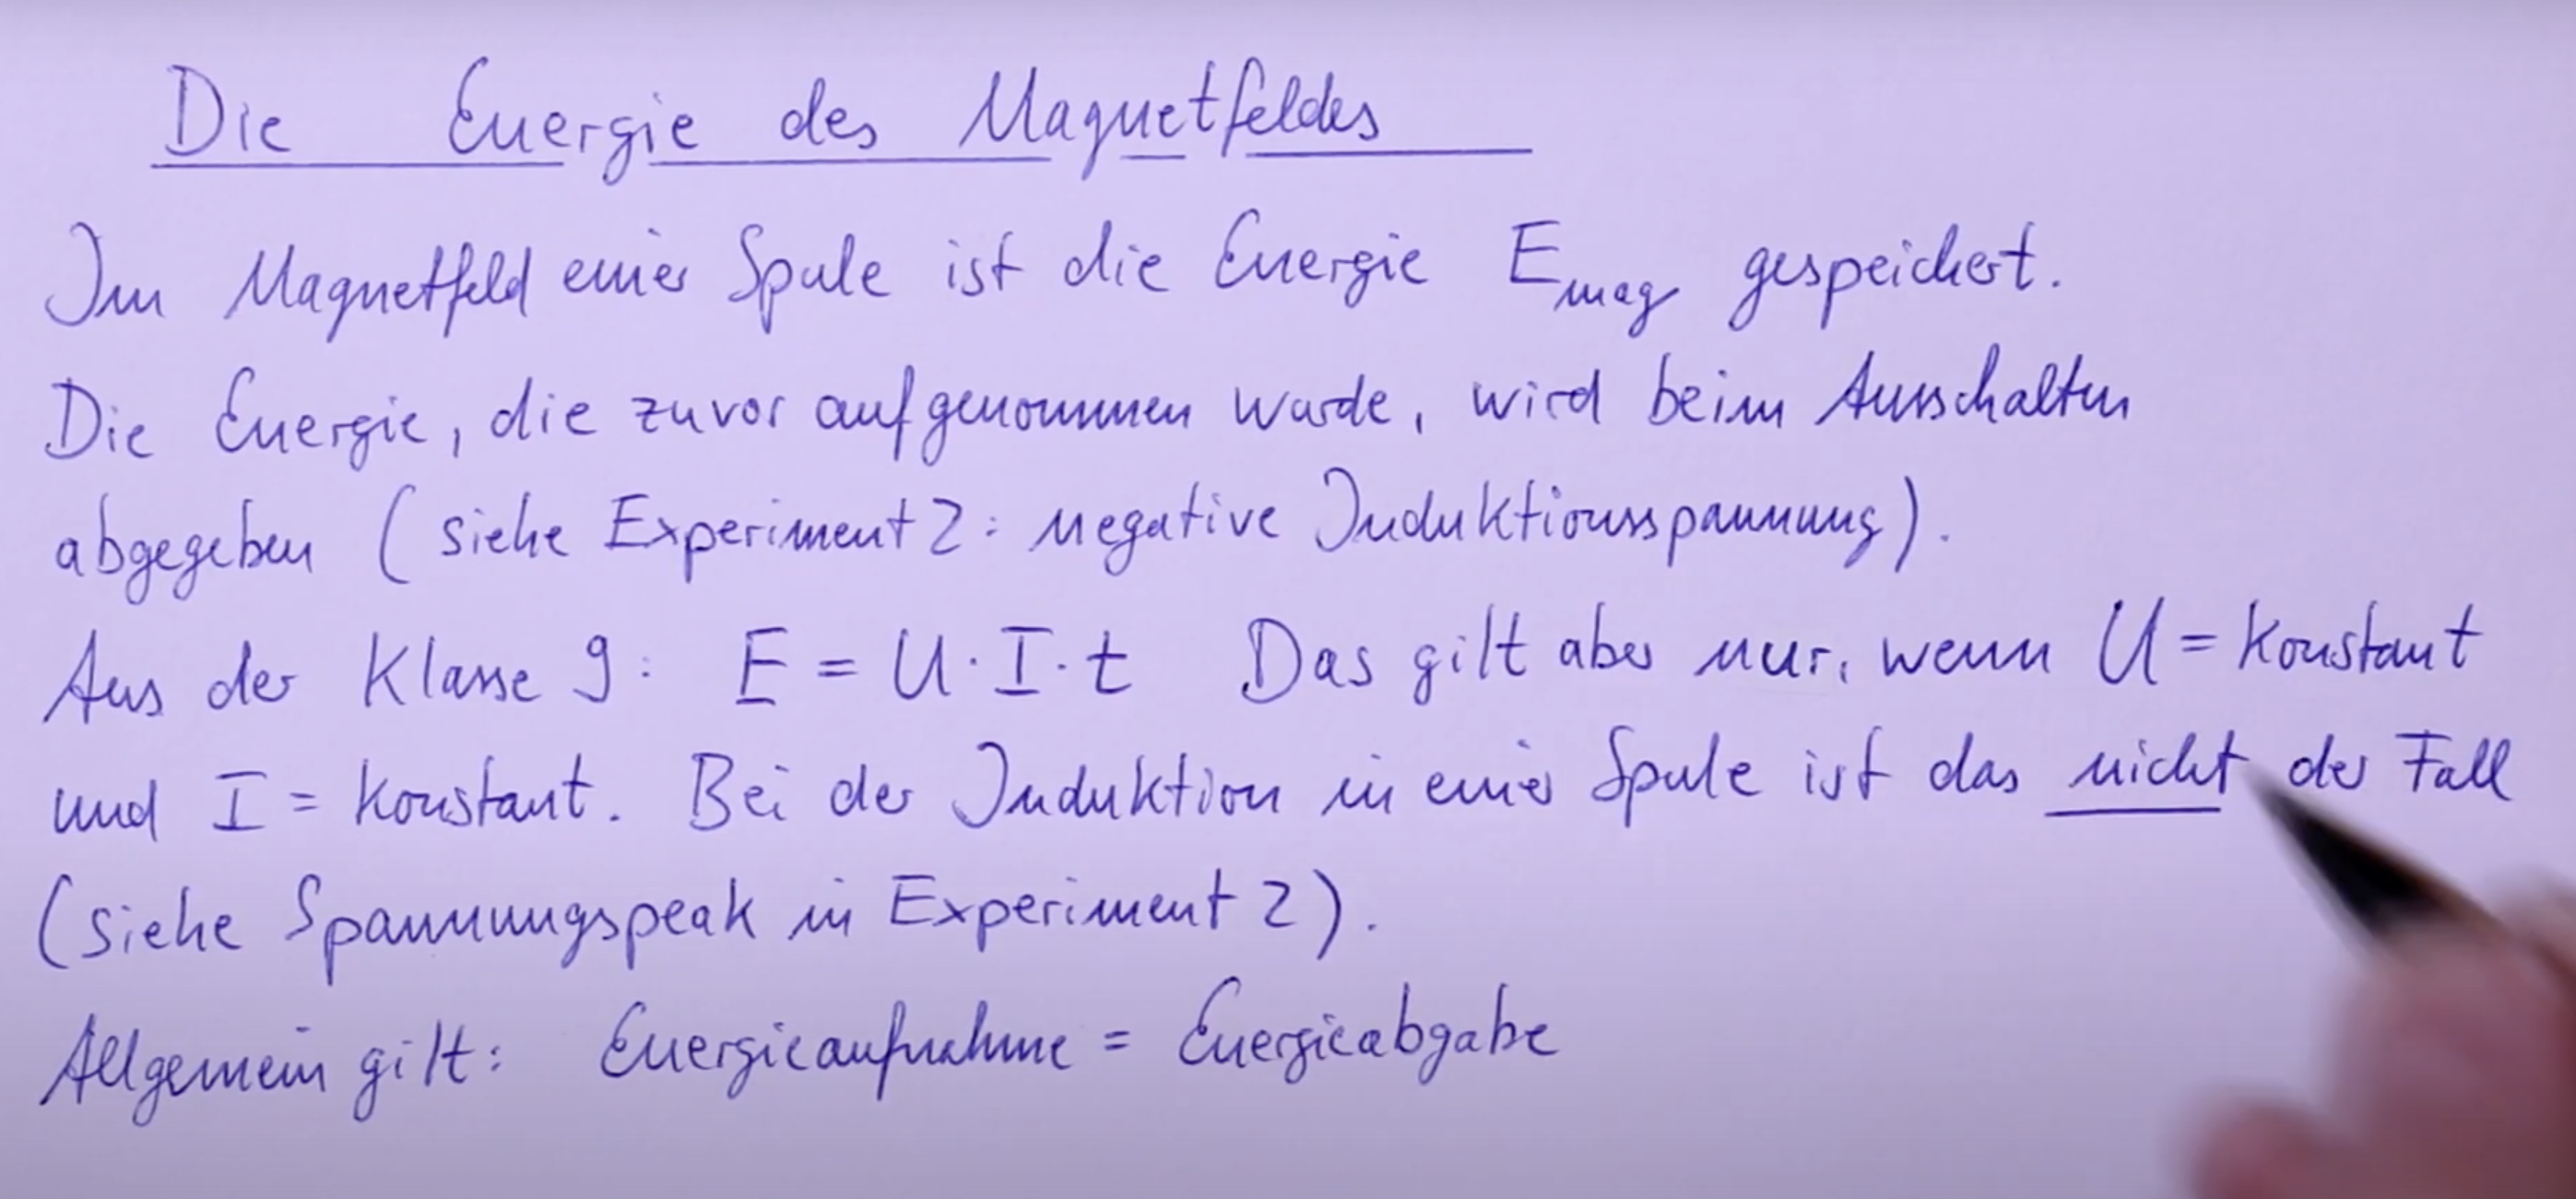 Die Energie des Magnetfeldes
Im Magnetfeld einer Spule ist die Energie E_mag gespeichert.
Die Energie, die zuvor aufgenommen wurde, wird beim Ausschalten
abgegeben (siehe Experiment 2: negative Induktionsspannung).
Aus der Klasse 9: E = U · I · t Das gilt aber nur, wenn U = konstant
und I = konstant. Bei der Induktion in einer Spule ist das nicht der Fall
(siehe Spannungspeak in Experiment 2).
Allgemein gilt: Energieaufnahme = Energieabgabe